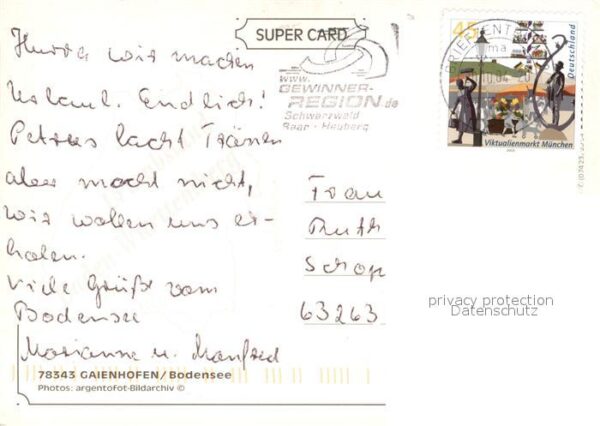 SUPER CARD
Hurra wir machen
Urlaub. Endlich!
Petrus lacht Tränen
aber macht nicht,
wir wollen uns er-
holen.
Viele Grüße vom
Bodensee
Marianne u. Manfred
78343 GAIENHOFEN/Bodensee
Photos: argentofot-Bildarchiv ©
www.
GEWINNER-
REGION.de
Schwarzwald
Baar - Heuberg
BRIEFZENTRUM
45
Deutschland
Viktualienmarkt München
Frau
Ruth
63263
privacy protection
Datenschutz